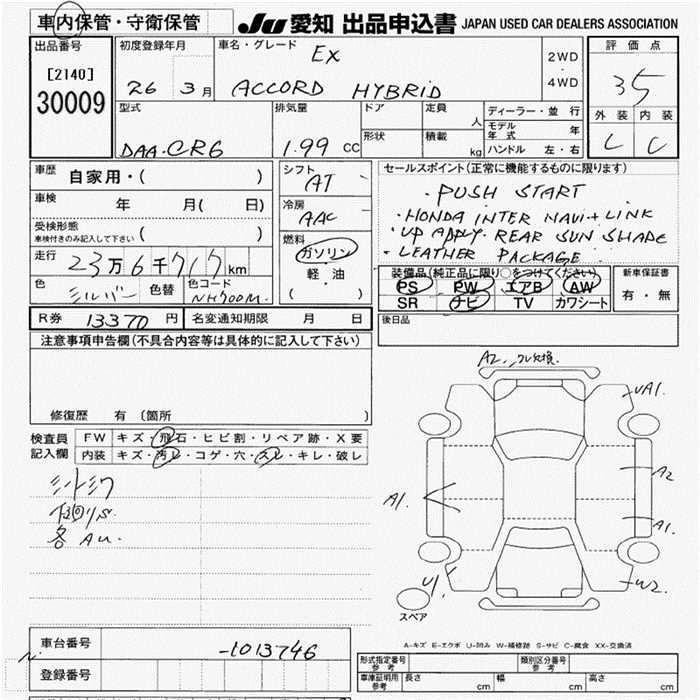 車内保管・守衛保管 JU 愛知 出品申込書 JAPAN USED CAR DEALERS ASSOCIATION
出品番号 初度登録年月 車名・グレード EX 2WD・4WD 評価点
[2140] 26 3月 ACCORD HYBRID 35
30009 外装 内装
型式 排気量 ドア 定員 人 ディーラー・並行
モデル年式 年
DAA-CR6 1.99 CC 形状 積載 kg ハンドル 左・右 C
車歴 自家用・( ) シフト AT セールスポイント(正常に機能するものに限ります)
・PUSH START
車検 年 月( 日) 冷房 AAC ・HONDA INTER NAVI+LINK
受検形態 ・UP APPLY. REAR SUN SHADE
車検付きのみ記入して下さい ( ) 燃料 ガソリン ・LEATHER PACKAGE.
走行 23万6千717km 軽油 装備品(純正品に限り○をつけてください) 新車保証書
色 シルバー 色替 色コード NH700M ( ) PS PW エアB AW 有・無
SR ナビ TV カワシート
R券 13370 円 名変通知期限 月 日 後日品
注意事項申告欄(不具合内容等は具体的に記入して下さい)
修復歴 有 〔箇所 〕
検査員記入欄 FW キズ・飛石・ヒビ割・リペア跡・X要
内装 キズ・汚レ・コゲ・穴・スレ・キレ・破レ
下回りS.
各AU.
A2
UA1
A1
A2
A1
U1
W2
スペア
A-キズ E-エクボ U-凹み W-補修跡 S-サビ C-腐食 XX-交換済
車台番号 -1013746
登録番号
形式指定番号 参考 類別区分番号 参考
車庫証明用 参考 長さ cm 幅 cm 高さ cm